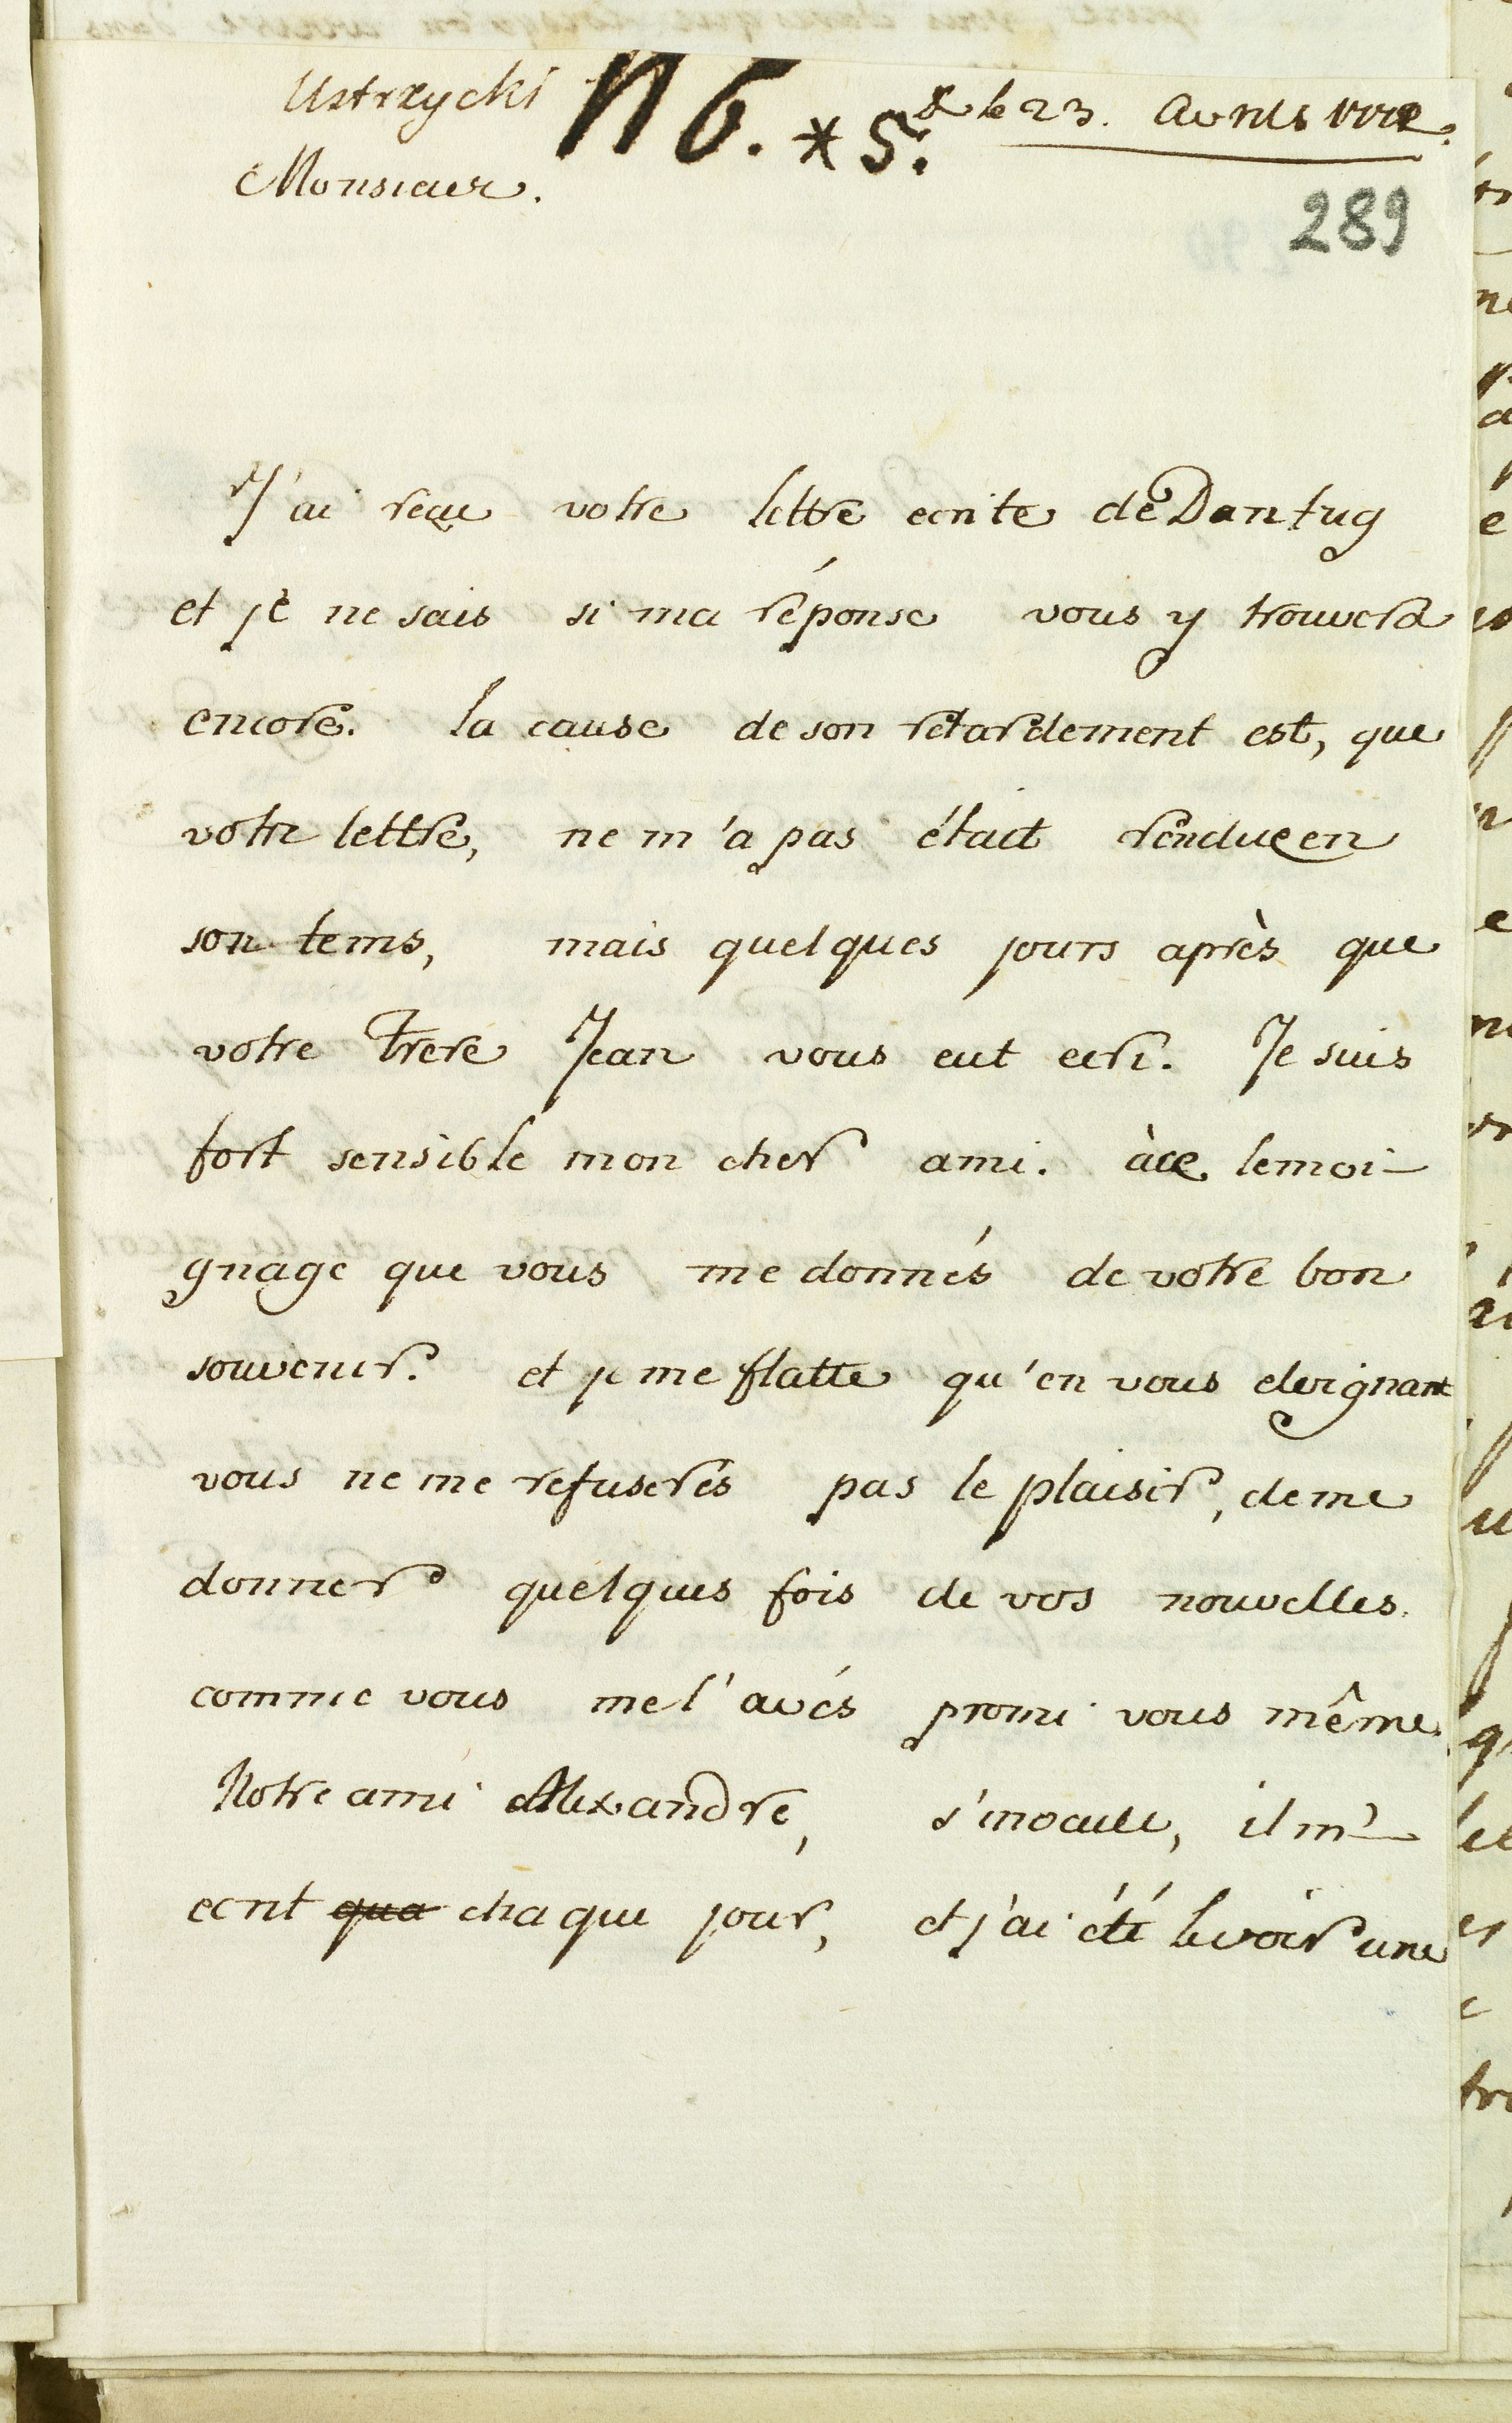 Ustrzycki N 6. * 5. le 23. Avrils
Monsieur.
289
J'ai reçu votre lettre ecrite de Dantzig
et je ne sais si ma réponse vous y trouvera
encore. la cause de son retardement est, que
votre lettre, ne m'a pas était rendue en
son tems, mais quelques jours après que
votre Frere Jean vous eut ecri. Je suis
fort sensible mon cher ami. à ce temoi-
gnage que vous me donnés de votre bon
souvenir. et je me flatte qu'en vous eloignant
vous ne me refuserés pas le plaisir, de me
donner quelques fois de vos nouvelles.
comme vous me l'avés promi vous même.
Notre ami Alexandre, s'inocule, il m'-
ecrit qua chaque jour, et j'ai été le voir une